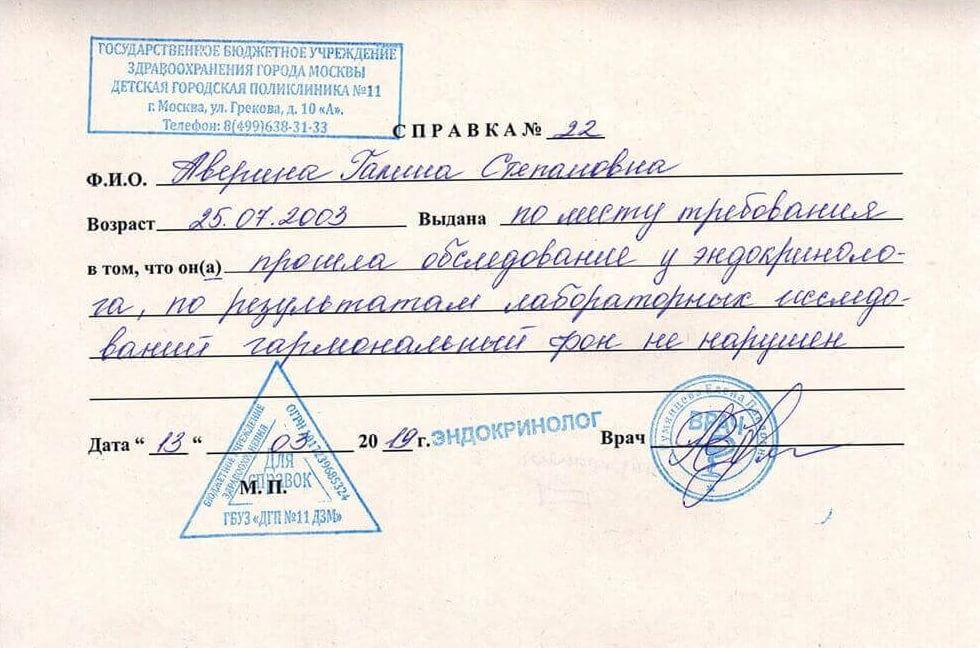 ГОСУДАРСТВЕННОЕ БЮДЖЕТНОЕ УЧРЕЖДЕНИЕ
ЗДРАВООХРАНЕНИЯ ГОРОДА МОСКВЫ
ДЕТСКАЯ ГОРОДСКАЯ ПОЛИКЛИНИКА №11
г. Москва, ул. Грекова, д. 10 «А».
Телефон: 8(499)638-31-33
СПРАВКА № 22
Ф.И.О. Аверина Галина Степановна
Возраст 25.07.2003 Выдана по месту требования
в том, что он(а) прошла обследование у эндокриноло-
га, по результатам лабораторных исследо-
ваний гармональный фон не нарушен
Дата “ 13 “ 03 20 19 г. ЭНДОКРИНОЛОГ Врач
ВРАЧ
БЮДЖЕТНОЕ УЧРЕЖДЕНИЕ
ЗДРАВООХРАНЕНИЯ
ОГРН
ДЛЯ
СПРАВОК
М. П.
ГБУЗ «ДГП №11 ДЗМ»